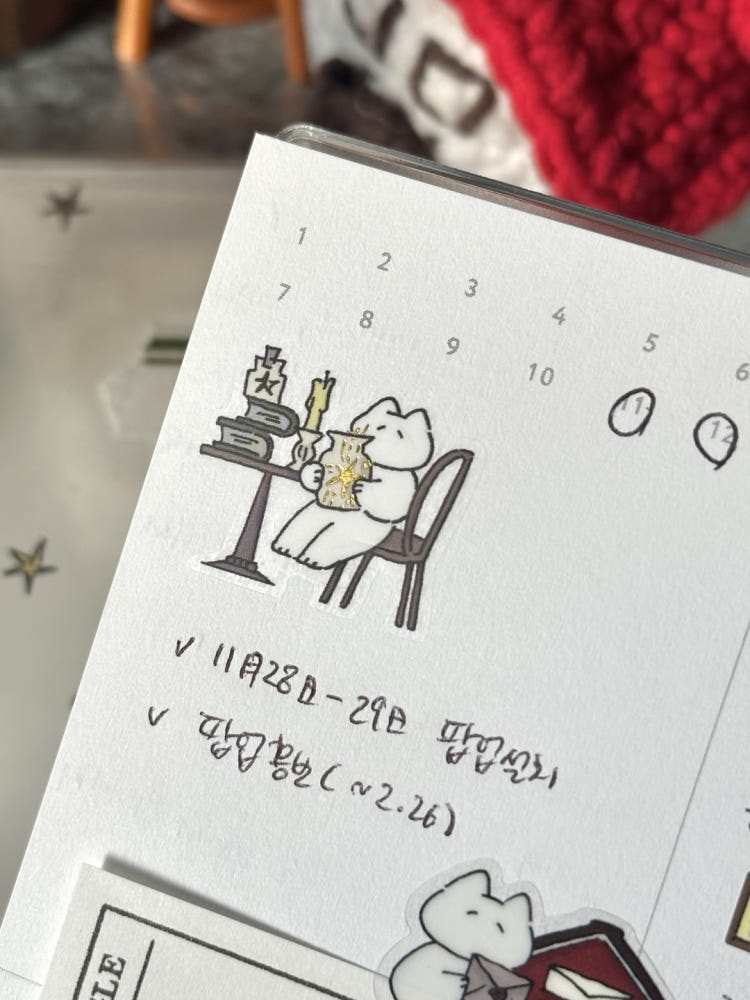 1 2 3 4 5 6
7 8 9 10 11 12
✓ 11月28日-29日 팝업설치
✓ 팝업종료(~2.26)